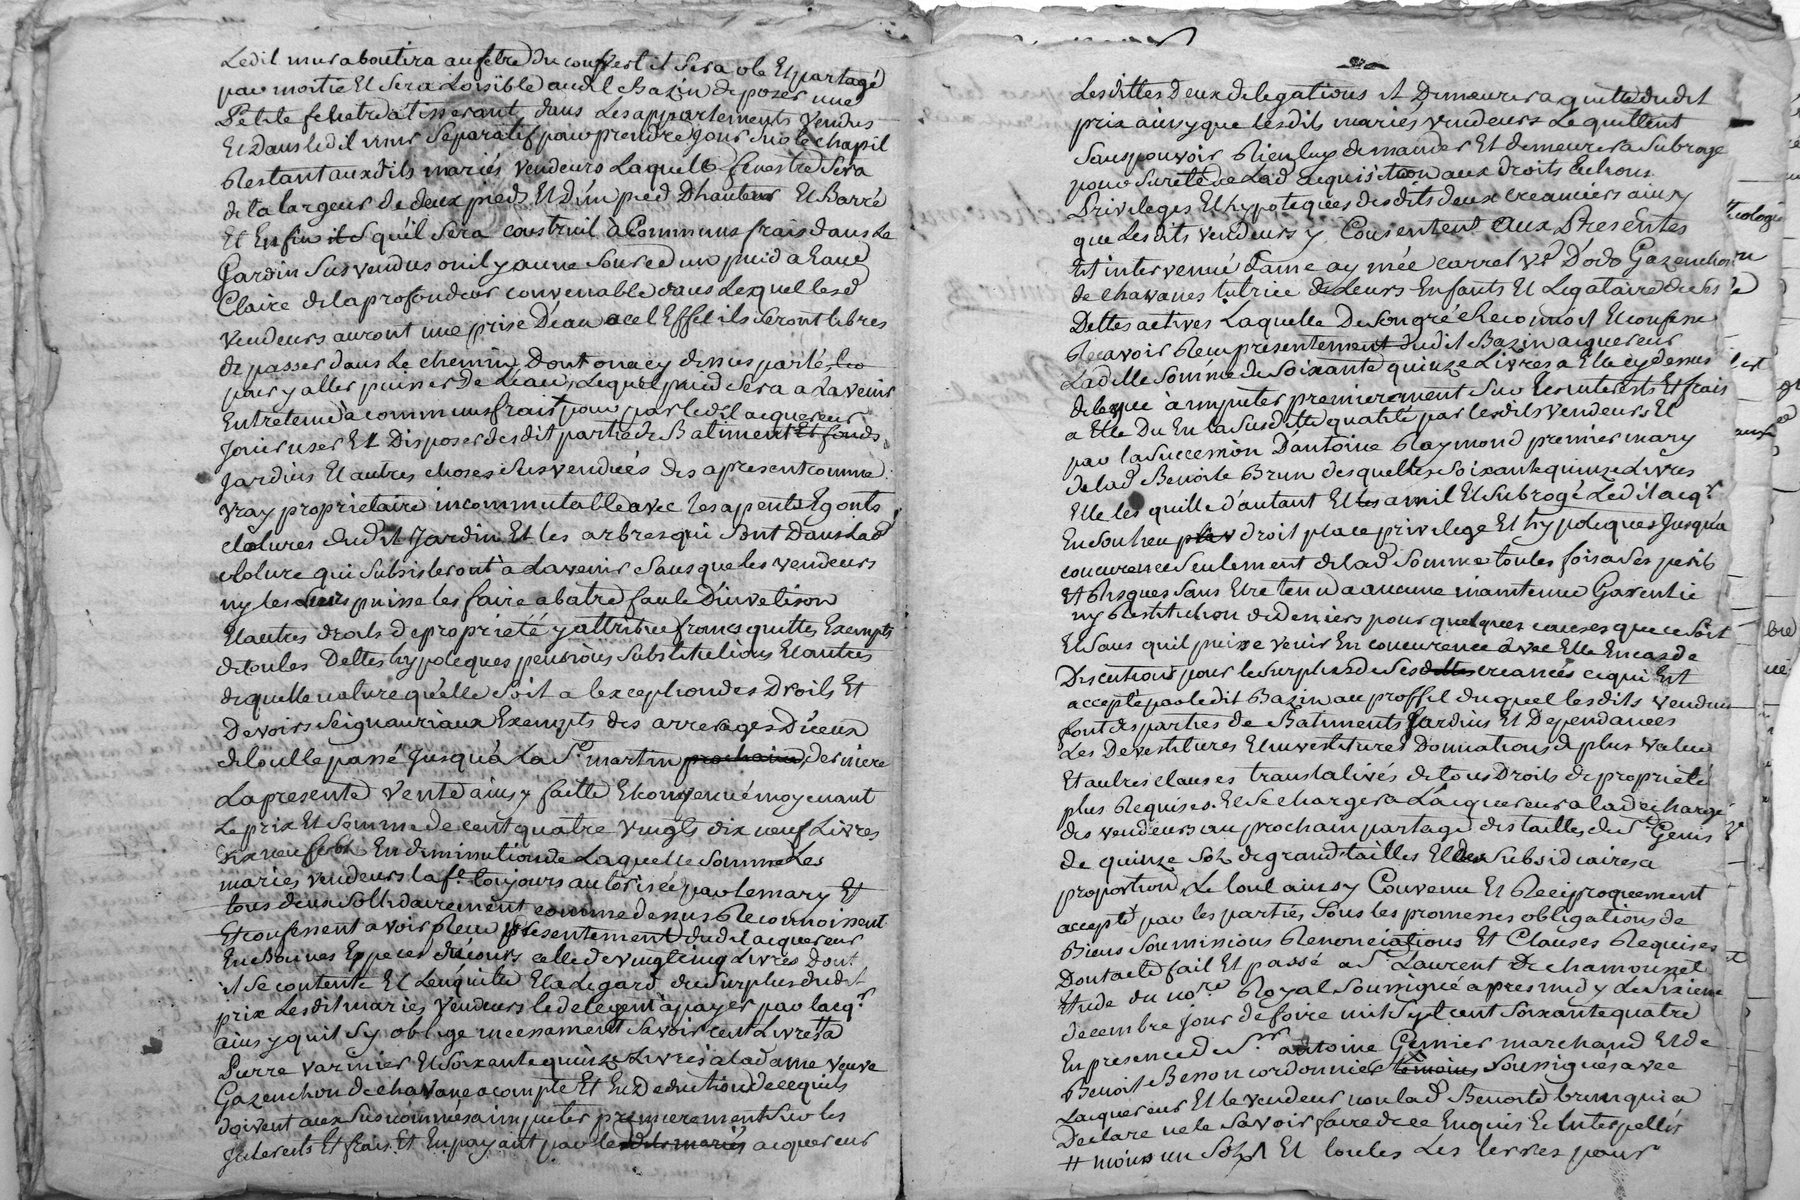 Ledit mur aboutira au fetre du couvert il sera ole Et partagé
par moitié Et sera Loisible audit Bazin de poser une
Petite fenetre dans Les appartements Vendus
Et Dans ledit mur separatif pour prendre jour sur le chapil
Restant auxdits mariés vendeurs Laquelle fenestre sera
de la largeur de deux pieds Et d'un pied D'hauteur Et Barré
Et Enfin il s qu'il sera construit à Communs frais dans Le
Jardin Susvendus ou il y a une source un puid a Eaue
Claire de la profondeur convenable dans Lequel lesd
vendeurs auront une prise D'eau a cet Effet ils seront libres
de passer dans Le chemin Dont on a cy dessus parlé
pour y aller puiser de L'eau, Lequel puid sera a L'avenir
Entretenu à communs frais pour par ledit acquereur
Jouir user Et Disposer desdit partie de Batiment Et fonds
Jardins Et autres choses susvendues des a present comme
vray proprietaire incommutable avec les apents Egouts
clotures dudit Jardin Et les arbres qui sont Dans Lad
cloture qui subsisteront à L'avenir sans que les vendeurs
ny les leurs puisse les faire abatre faute D'
Et autres droits de proprieté y attribue francs quittes Exempts
de toutes Dettes hypoteques pensions substitutions Et autres
de quelle nature qu'elle soit a l'exception des Droits Et
Devoirs seignauriaux Exempts des arrerages D'iceux
de tout le passé Jusqu'à La St martin prochain derniere
La presente vente ainsy faitte Et convenue moyenant
Le prix Et somme de cent quatre vingts dix neuf Livres
dix neuf sols En diminution de Laquelle somme Les
mariés vendeurs la fe toujours autorisée par le mary Et
tous deux sollidairement comme dessus Reconnoissent
Et confessent avoir Receu presentement dudit acquereur
En Bonnes Especes de cours celle de vingt cinq Livres dont
il se contente Et L'enquitte Et a L'egard du surplus dudit
prix Lesdit mariés vendeurs le delegent à payer par l'acqr
ainsy qu'il s'y oblige incessament savoir cent Livres a
Pierre varinier Et soixante quinze Livres a la dame veuve
Gazenchon de chavane a compte Et En Deduction de ce quils
doivent aux susnommés a imputer premierement sur les
Interests Et frais Et En payant par le sdits mariés acquereur
Lesdittes Deux delegations il Demeurera quitte dudit
prix ainsy que lesdits mariés vendeurs Le quittent
sans pouvoir Rien luy demander Et demeurera subrogé
pour sureté de Lad acquisition aux droits Actions
Privileges Et hypoteques desdits deux creanciers ainsy
que Lesdits vendeurs y Consentent Aux Presentes
est intervenue dame aymée carret ve D'odo Gazenchon
de chavanes tutrice de Leurs Enfants Et Legataire de ses
Dettes actives Laquelle De son gré Reconnoit Et confesse
Recevoir Reu presentement dudit Bazin acquereur
Ladille somme de soixante quinze Livres a Elle cy dessus
deleguée à imputer premierement sur les interests Et frais
a Elle Du En la susditte qualité par lesdits vendeurs Et
par la succession D'antoine Raymond premier mary
de lad Benoite Brun desquelles soixante quinze Livres
Elle les quitte d'autant Et les a mil Et subrogé Ledit acqr
En son lieu droit place privilege Et hypoteques Jusqu'a
concurence seulement de lad somme toutes fois a ses perils
Et Risques sans Etre tenu a aucune maintenue Garentie
ny Restitution de deniers pour quelques causes que ce soit
Et sans qu'il puisse venir En concurence avec Elle En cas de
Discution pour le surplus de ses dettes creances ce qui Est
accepté par ledit Bazin au proffit duquel lesdits vendeurs
font des parties de Batiments Jardins Et Dependances
Les Devestitures Et investitures Donnations de plus value
Et autres clauses translatives de tous Droits de proprieté
plus Requises. Et se chargera L'acquereur a la decharge
des vendeurs au prochain partage des tailles de St Genis
de quinze sols de grand tailles Et des subsidiaires a
proportion, Le tout ainsy Convenu Et Reciproquement
accepté par les parties, sous les promesses obligations de
Biens soumissions Renonciations Et Clauses Requises
Dont acte fait Et passé a St Laurent De chamousset
Etude du nore Royal soussigné apres midy Le sixieme
decembre jour de foire mil sept cent soixante quatre
En presence de Sr antoine Gemier marchand Et de
Benoit Benon cordonnier temoins soussignés avec
L'acquereur Et le vendeur non lad Benoite brun qui a
Declaré ne le savoir faire de ce Enquis Et Interpellés
# moins un Sol Et toutes Les terres pour